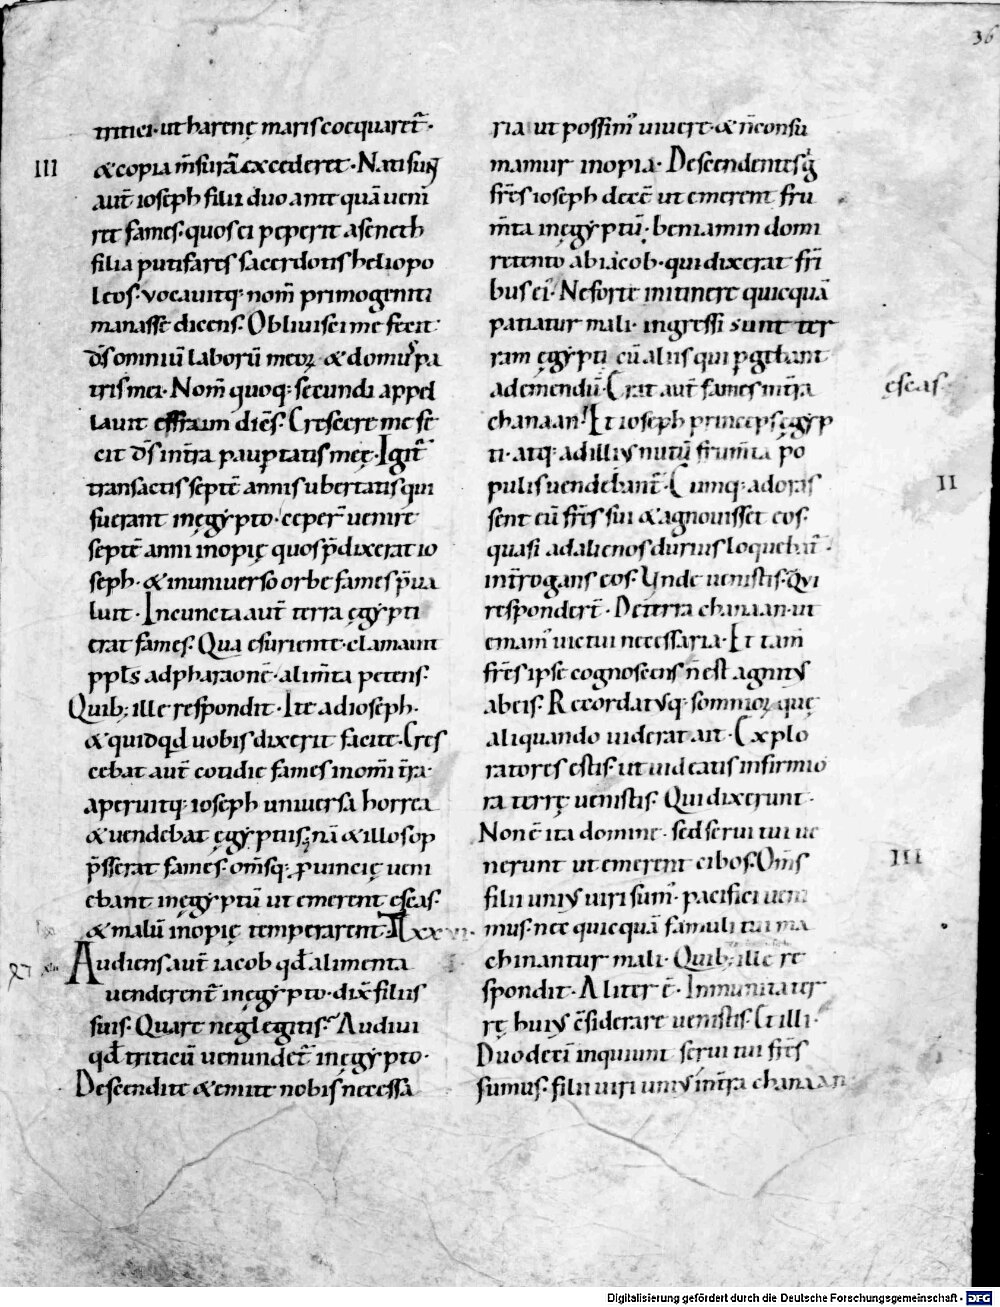 36
tritici· ut harenę maris coequaret᷑·
III
& copia m̅surā excederet· Nati sunt
aut̅ ioseph filii duo ante quā ueni
ret fames· quos ei peperit aseneth
filia putifares sacerdotis heliopo
leos· vocauitq; nom̅ primogeniti
manasse dicens· Obliuisci me fecit
d̅s omniū laborū meoꝝ & domus pa
tris mei· Nom̅ quoq; secundi appel
lauit effraim dice̅s· Crescere me fe
cit d̅s in t̅ra paup̱tatis meę· Igit᷑
transactis septē annis ubertatis qui
fuerant in ęgẏpto· ceper̅ uenire
septē anni inopię quos p̅dixerat io
seph· & in uniuerso orbe fames p̅ua
luit· In cuncta aut̅ terra ęgẏpti
erat fames· Qua esuriente· clamauit
ppl̅s ad pharaone̅· alim̅ta petens·
Quib; ille respondit· Ite ad ioseph·
& quidqd̅ uobis dixerit facite· Cres
cebat aut̅ cotidie fames in om̅i t̅ra·
aperuitq; ioseph uniuersa horrea
& uendebat ęgẏptiis· nā & illos op
p̅sserat fames· om̅sq; ꝓuincię ueni
ebant in ęgẏptū ut emerent escas·
& malū inopię temperarent· xxvi·
Audiens aut̅ iacob qd̅ alimenta
uenderent᷑ in ęgẏpto· dix̅ filiis
suis· Quare neglegitis? Audiui
qd̅ triticū uenundet᷑ in ęgẏpto·
Descendite & emite nobis necessa
ria ut possim᷒ uiuere· & n̅ consu
mamur inopia· Descendentes g̊
fr̅s ioseph dece̅ ut emerent fru
m̅ta in ęgẏptū· beniamin domi
retento ab iacob· qui dixerat fr̅i
bus ei᷒· Ne forte in itinere quicquā
patiatur mali· ingressi sunt ter
ram ęgẏpti cū aliis qui p̱gebant
ad emendū· Erat aut̅ fames in t̅ra
escas·
chanaan· Et ioseph princeps ęgẏp
ti· atq; ad illius nutū frum̅ta po
II
pulis uendebant᷑· Cumq; adoras
sent eū fr̅s sui & agnouisset eos·
quasi ad alienos durius loquebat᷑·
int̅rogans eos· Unde uenistis· Qui
respondert̅· De terra chanaan· ut
emam᷒ uictui necessaria· Et tam̅
fr̅s ipse cognoscens n̅ est agnitus
ab eis· Recordatusq; somnioꝝ quę
aliquando uiderat ait· Explo
ratores estis· ut uideatis infirmio
ra terrę uenistis· Qui dixerunt·
Non ē ita domine· sed serui tui ue
III
nerunt ut emerent cibos· Om̅s
filii unius uiri sum᷒· pacifici ueni
mus· nec quicquā famuli tui ma
chinantur mali· Quib; ille re
spondit· Aliter ē· Inmunita ter
rę huius c̅siderare uenistis· Et illi·
Duodeci̅ inquiunt serui tui fr̅s
sumus· filii uiri unius in t̅ra chanaan·
Digitalisierung gefördert durch die Deutsche Forschungsgemeinschaft - DFG